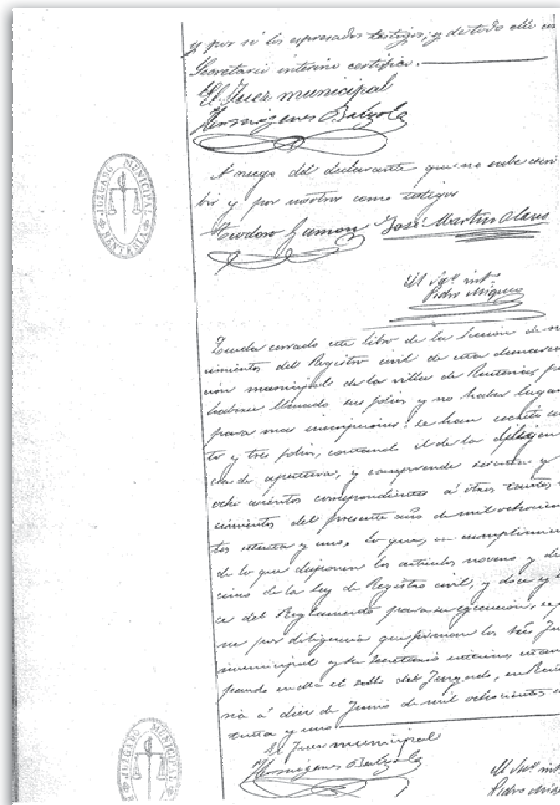 y por sí los expresados testigos, y de todo ello el
Secretario interino certifico.
El Juez municipal
Hermógenes Balzola
A ruego del declarante que no sabe escri
bir y por nosotros como testigos
Teodoro Gamon José Martin Olano
El Sº intº
Pedro
Queda cerrado este libro de la Sección de na
cimientos del Registro civil de esta demarca
ción municipal de la villa de Renteria, por
haberse llenado sus folios y no haber lugar
para mas inscripciones: se han escrito cien
to y tres folios, contando el de la diligen
cia de apertura, y comprende sesenta y
ocho asientos correspondientes á otros tantos
cimientos del presente año de mil ochocien
tos setenta y uno. Lo que, en cumplimien
de lo que disponen los artículos noveno y dé
cimo de la ley de Registro civil, y doce y
ce del Reglamento para su ejecución,
por diligencia que firman los Sres Juez
municipal y el Secretario interino, estam
pando en ella el sello del Juzgado, en Rente
ria á diez de Junio de mil ochocientos se
tenta y uno
El Juez municipal
Hermógenes Balzola
El Sº int
Pedro
JUZGADO MUNICIPAL
RENTERIA
JUZGADO MUNICIPAL